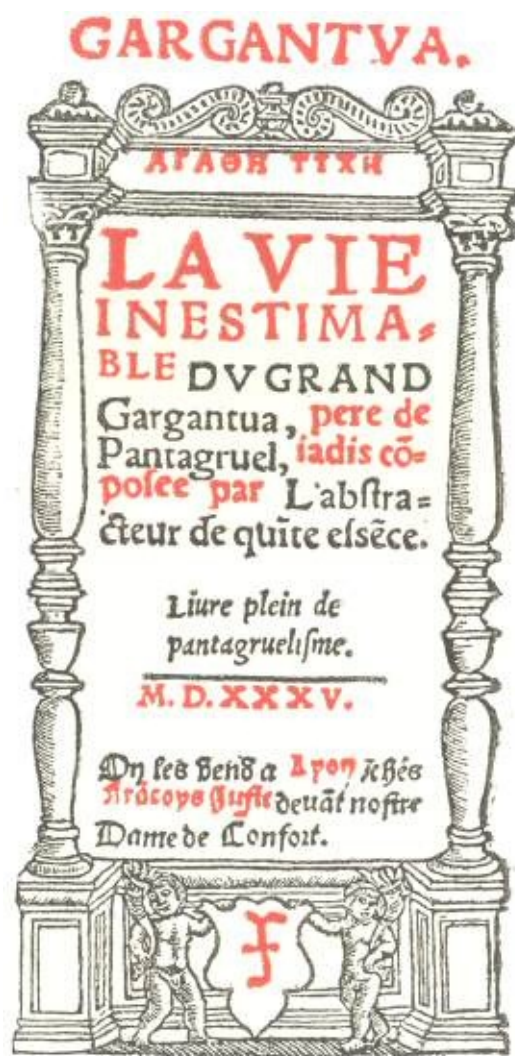 GARGANTVA.
ΑΓΑΘΗ ΤΥΧΗ
LA VIE
INESTIMA-
BLE DV GRAND
Gargantua, pere de
Pantagruel, iadis cō-
posee par L'abstra-
cteur de quīte essēce.
Liure plein de
pantagruelisme.
M. D. XXXV.
On les vend a Lyon chés
Frācoys Juste devāt nostre
Dame de Confort.
F